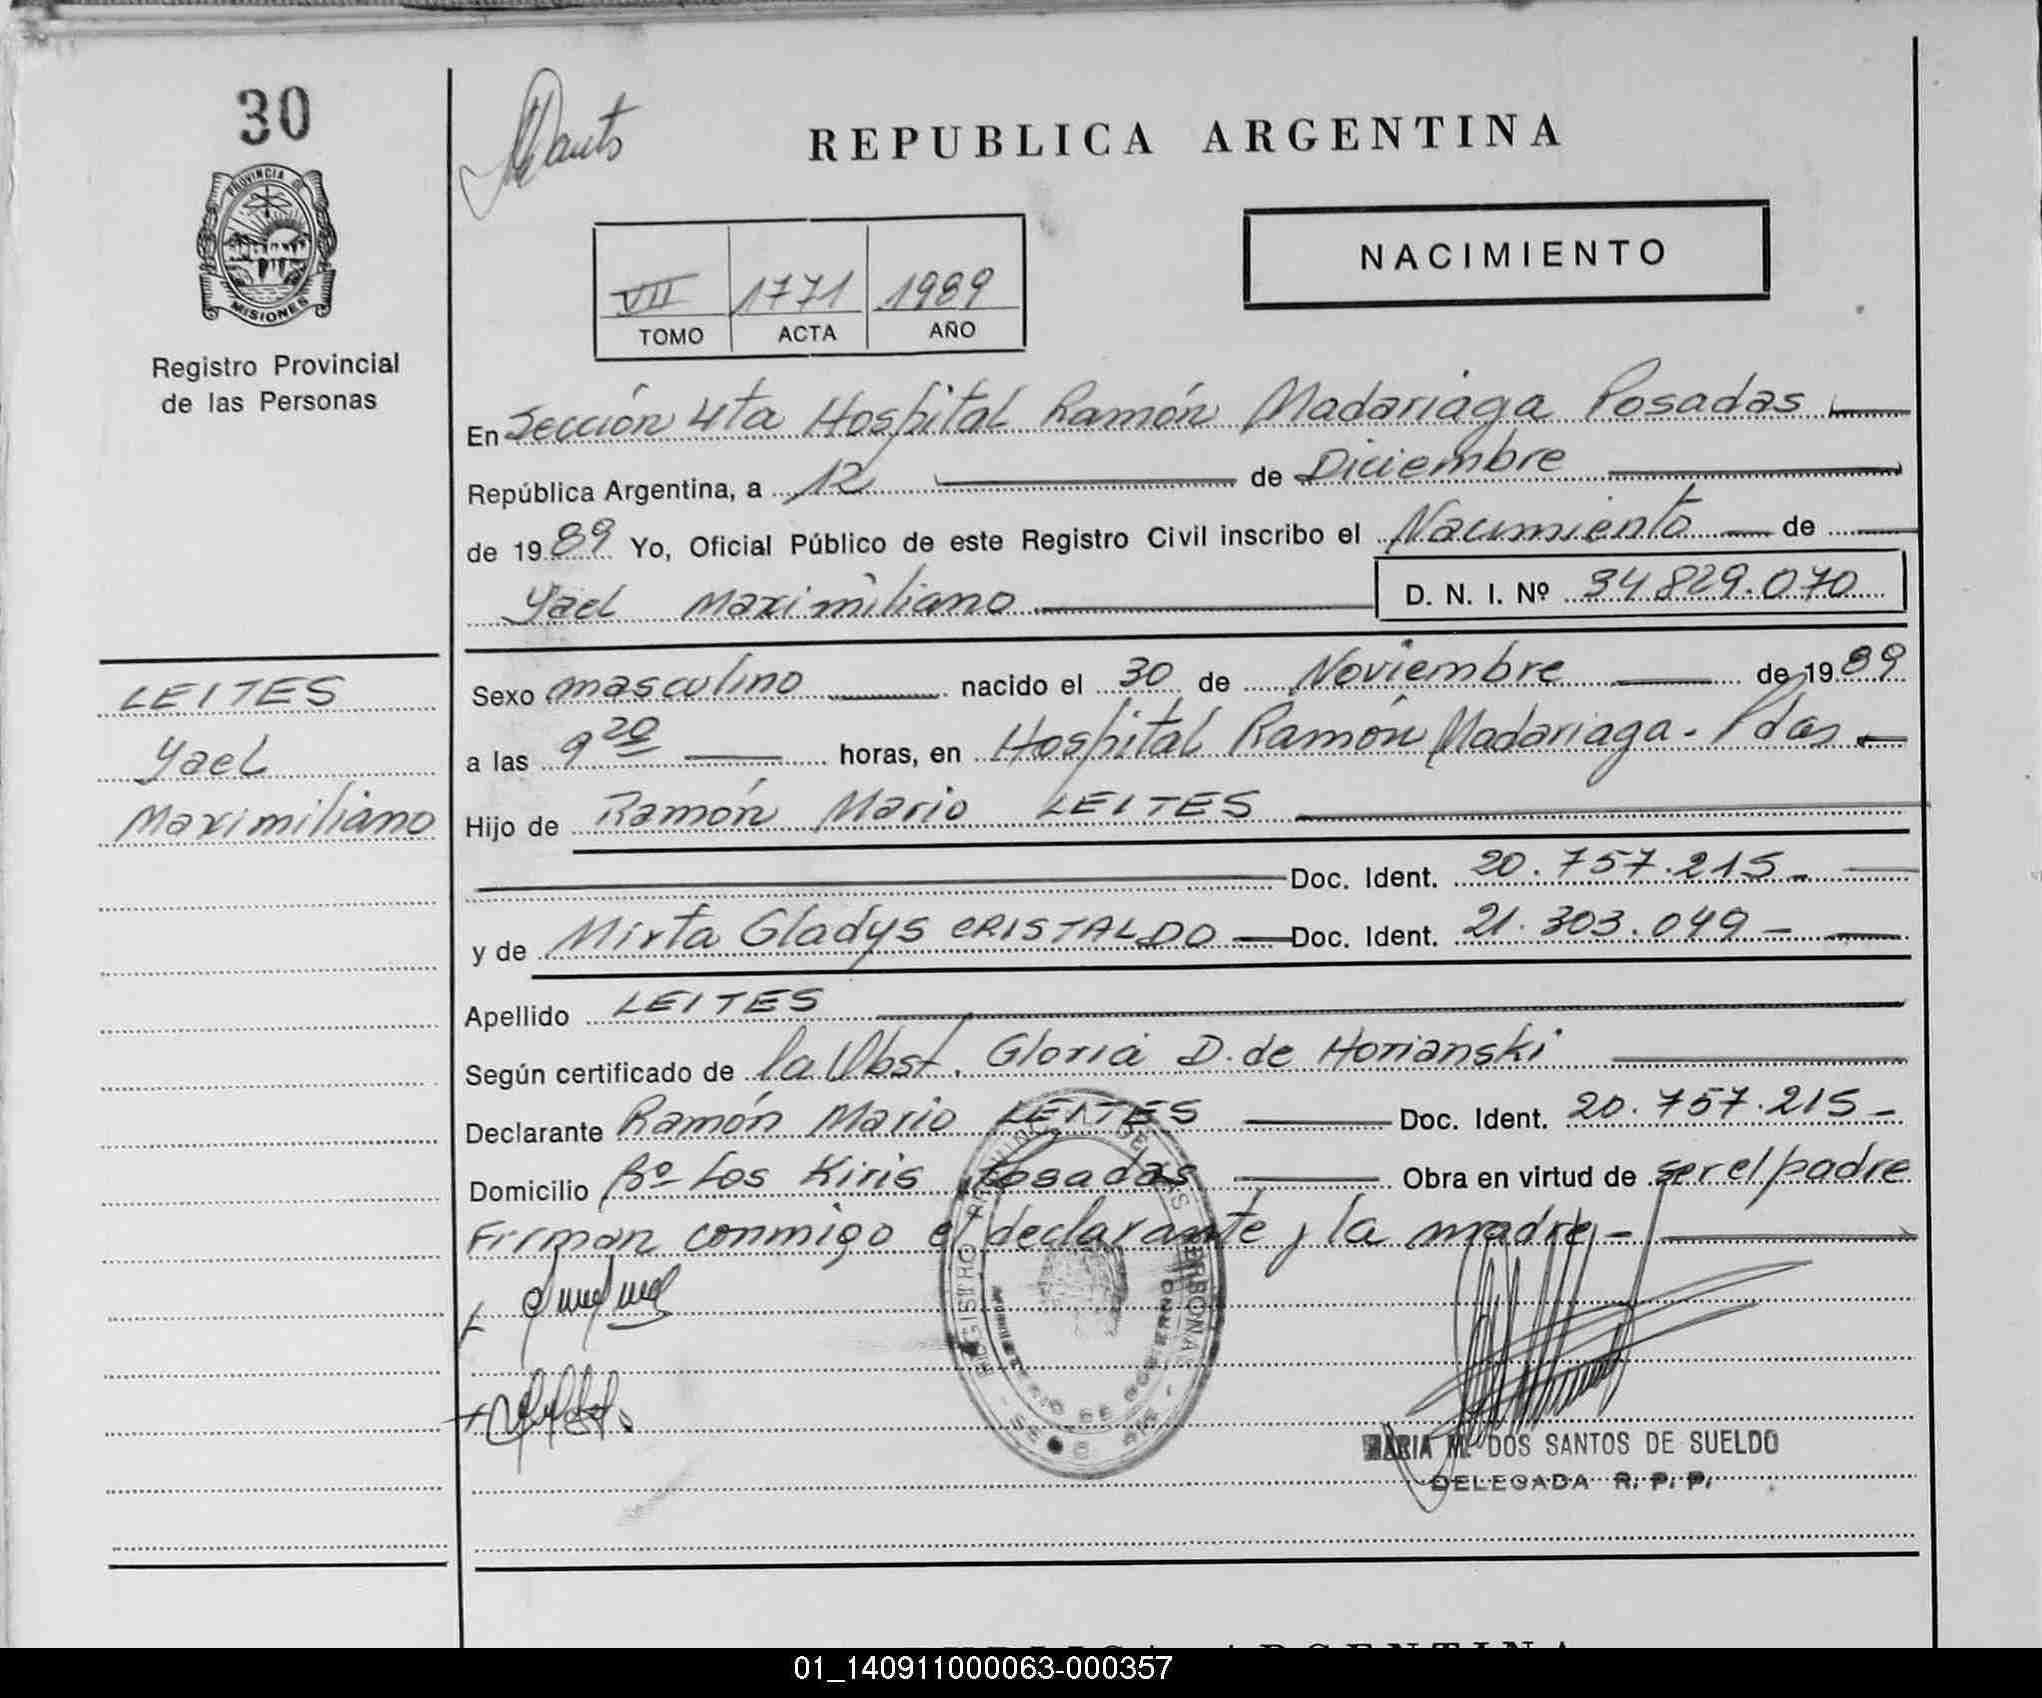 30
PROVINCIA DE
MISIONES
Registro Provincial
de las Personas
REPUBLICA ARGENTINA
NACIMIENTO
VII 1771 1989
TOMO ACTA AÑO
En Sección 4ta Hospital Ramón Madariaga Posadas
República Argentina, a 12 de Diciembre
de 1989 Yo, Oficial Público de este Registro Civil inscribo el Nacimiento de
Yael Maximiliano D. N. I. Nº 34829.070
LEITES
Yael
Maximiliano
Sexo masculino nacido el 30 de Noviembre de 1989
a las 9 20 horas, en Hospital Ramón Madariaga - Pdas
Hijo de Ramón Mario LEITES
Doc. Ident. 20.757.215
y de Mirta Gladys CRISTALDO Doc. Ident. 21.303.049
Apellido LEITES
Según certificado de la Obst. Gloria D. de Horianski
Declarante Ramón Mario LEITES Doc. Ident. 20.757.215
Domicilio Bº Los Kiris Posadas Obra en virtud de ser el padre
Firman conmigo el declarante y la madre
REGISTRO PROVINCIAL DE LAS PERSONAS
MINISTERIO DE GOBIERNO
MARIA M. DOS SANTOS DE SUELDO
DELEGADA R. P. P.
REPUBLICA ARGENTINA
01_140911000063-000357